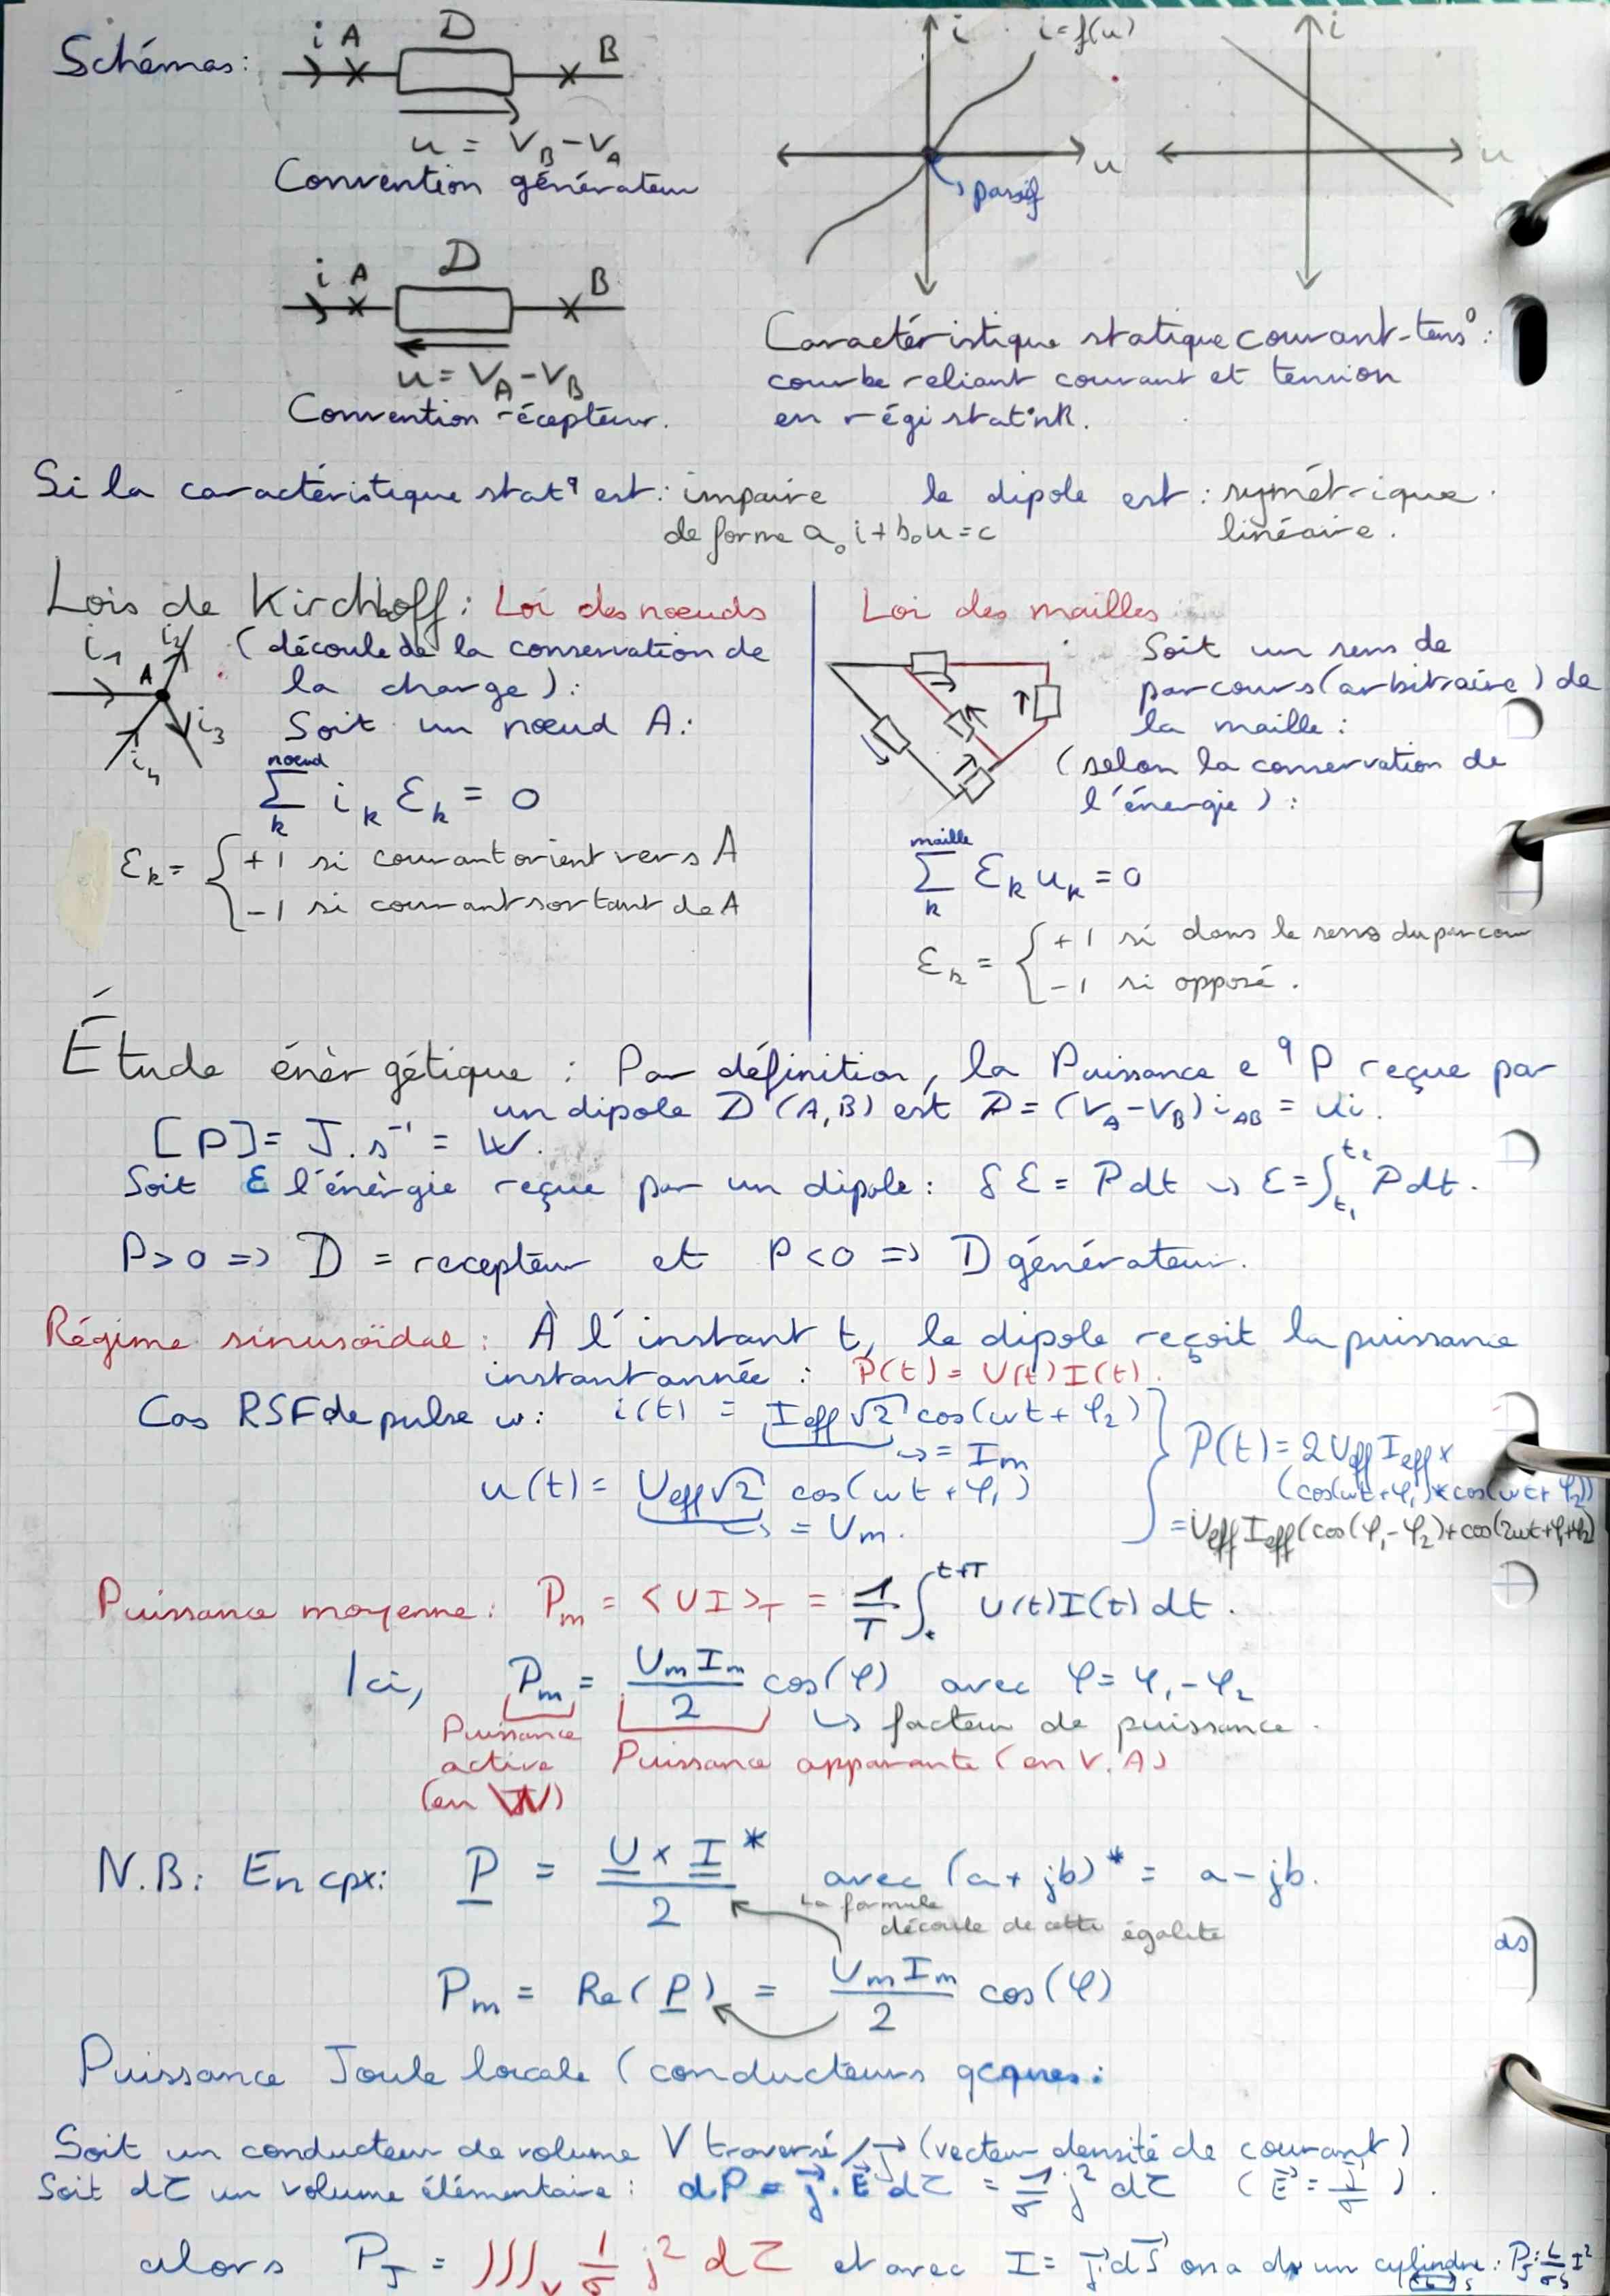 Schémas:
i A D B
u = V_B - V_A
Convention générateur
i A D B
u = V_A - V_B
Convention récepteur.
i i=f(u)
u
passif
i
u
Caractéristique statique courant-tens°:
courbe reliant courant et tension
en régi statnR.
Si la caractéristique stat^q est: impaire le dipole est: symétrique.
de forme a_0 i + b_0 u = c linéaire.
Lois de Kirchhoff: Loi des nœuds
i_1 i_2 A i_3 i_4
(découle de la conservation de
la charge):
Soit un nœud A:
nœud
∑_k i_k ε_k = 0
ε_k = { +1 si courant orient vers A
-1 si courant sortant de A
Loi des mailles
Soit un sens de
parcours (arbitraire) de
la maille:
(selon la conservation de
l'énergie):
maille
∑_k ε_k u_k = 0
ε_k = { +1 si dans le sens du parcour
-1 si opposé.
Étude énèrgétique: Par définition, la Puissance e^q P reçue par
un dipole D (A,B) est P = (V_A - V_B) i_AB = ui.
[P] = J.s^-1 = W.
Soit ε l'énèrgie reçue par un dipole: δε = P dt ↪ ε = ∫_{t_1}^{t_2} P dt.
P>0 => D = recepteur et P<0 => D générateur.
Régime sinusoïdal: À l'instant t, le dipole reçoit la puissance
instantannée: P(t) = U(t) I(t).
Cas RSF de pulse ω: i(t) = I_eff √2 cos(ωt + φ_2)
↪ = I_m
u(t) = U_eff √2 cos(ωt + φ_1)
↪ = U_m.
P(t) = 2 U_eff I_eff ×
(cos(ωt+φ_1)*cos(ωt+φ_2))
= U_eff I_eff (cos(φ_1-φ_2)+cos(2ωt+φ_1+φ_2)
Puissance moyenne: P_m = <UI>_T = 1/T ∫_t^{t+T} U(t)I(t) dt.
Ici, P_m = U_m I_m / 2 cos(φ) avec φ = φ_1 - φ_2
↪ facteur de puissance.
Puissance
active
(en W)
Puissance apparante (en V.A)
N.B: En cpx: P = U × I* / 2 avec (a + jb)* = a - jb.
La formule
découle de cette égalité
P_m = Re(P) = U_m I_m / 2 cos(φ)
ds
Puissance Joule locale (conducteurs
Soit un conducteur de volume V traversé / j⃗ (vecteur densité de courant)
Soit dτ un volume élémentaire: dP = j⃗.E⃗ dτ = 1/σ j² dτ (E⃗ = j⃗/σ).
alors P_J = ∭_V 1/σ j² dτ et avec I = j⃗.dS⃗ on a un cylindre: P_J = L/σS I²